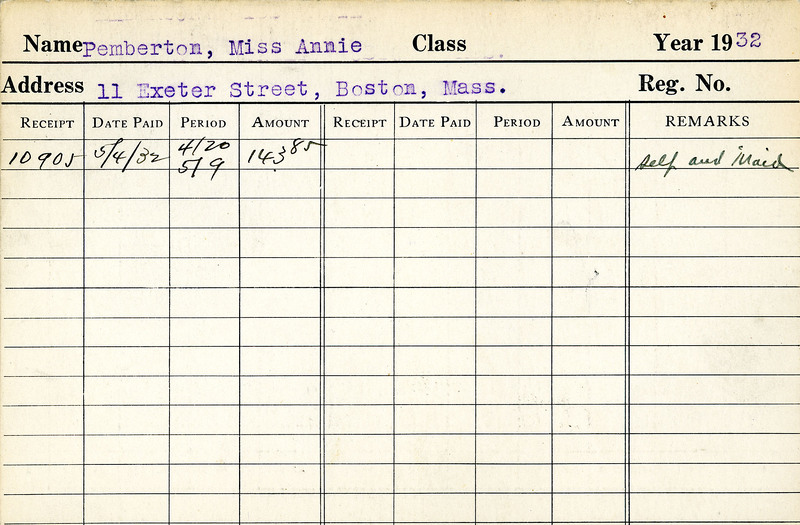 Name Pemberton, Miss Annie Class Year 1932
Address 11 Exeter Street, Boston, Mass. Reg. No.
RECEIPT DATE PAID PERIOD AMOUNT RECEIPT DATE PAID PERIOD AMOUNT REMARKS
10905 5/4/32 4/20 143.85 self and Maid
5/9